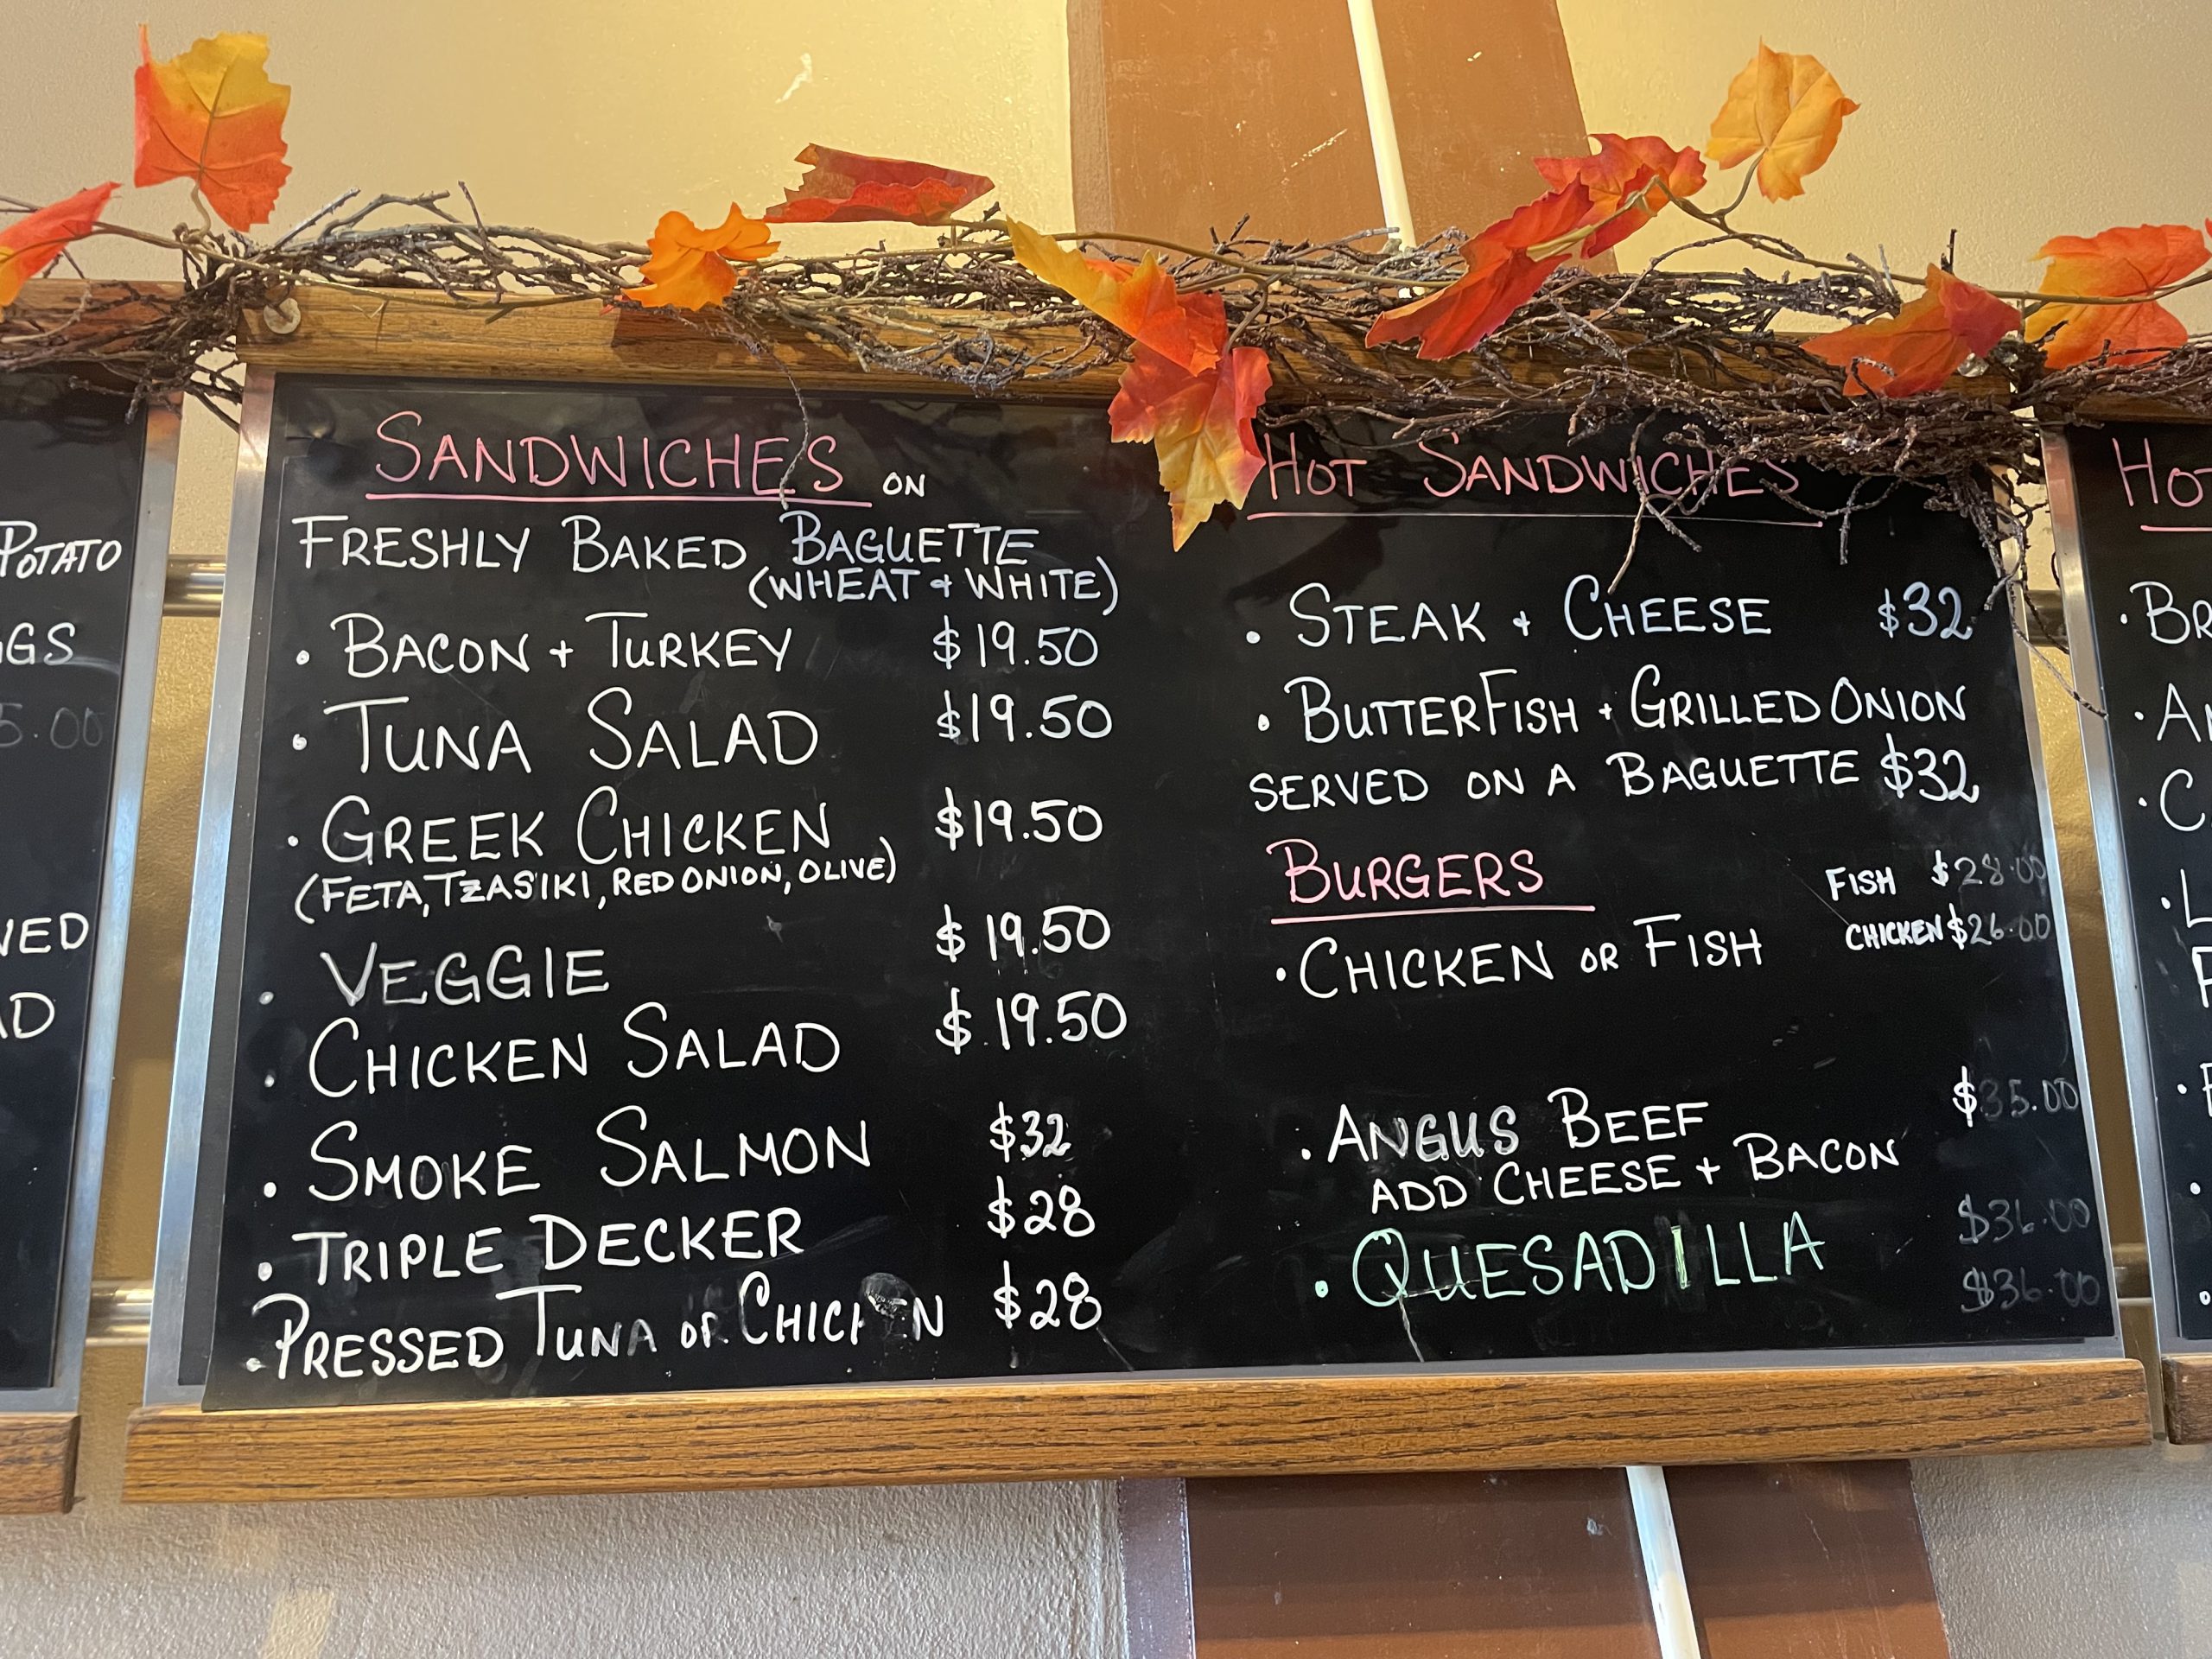 SANDWICHES ON
FRESHLY BAKED BAGUETTE
(WHEAT + WHITE)
• BACON + TURKEY $19.50
• TUNA SALAD $19.50
• GREEK CHICKEN $19.50
(FETA, TZASIKI, RED ONION, OLIVE)
• VEGGIE $19.50
• CHICKEN SALAD $19.50
• SMOKE SALMON $32
• TRIPLE DECKER $28
• PRESSED TUNA OR CHIC N $28
HOT SANDWICHES
• STEAK + CHEESE $32
• BUTTERFISH + GRILLED ONION
SERVED ON A BAGUETTE $32
BURGERS
FISH $28.00
CHICKEN $26.00
• CHICKEN OR FISH
• ANGUS BEEF $35.00
ADD CHEESE + BACON
$36.00
• QUESADILLA
$36.00
POTATO
GGS
5.00
NED
AD
HOT
• BR